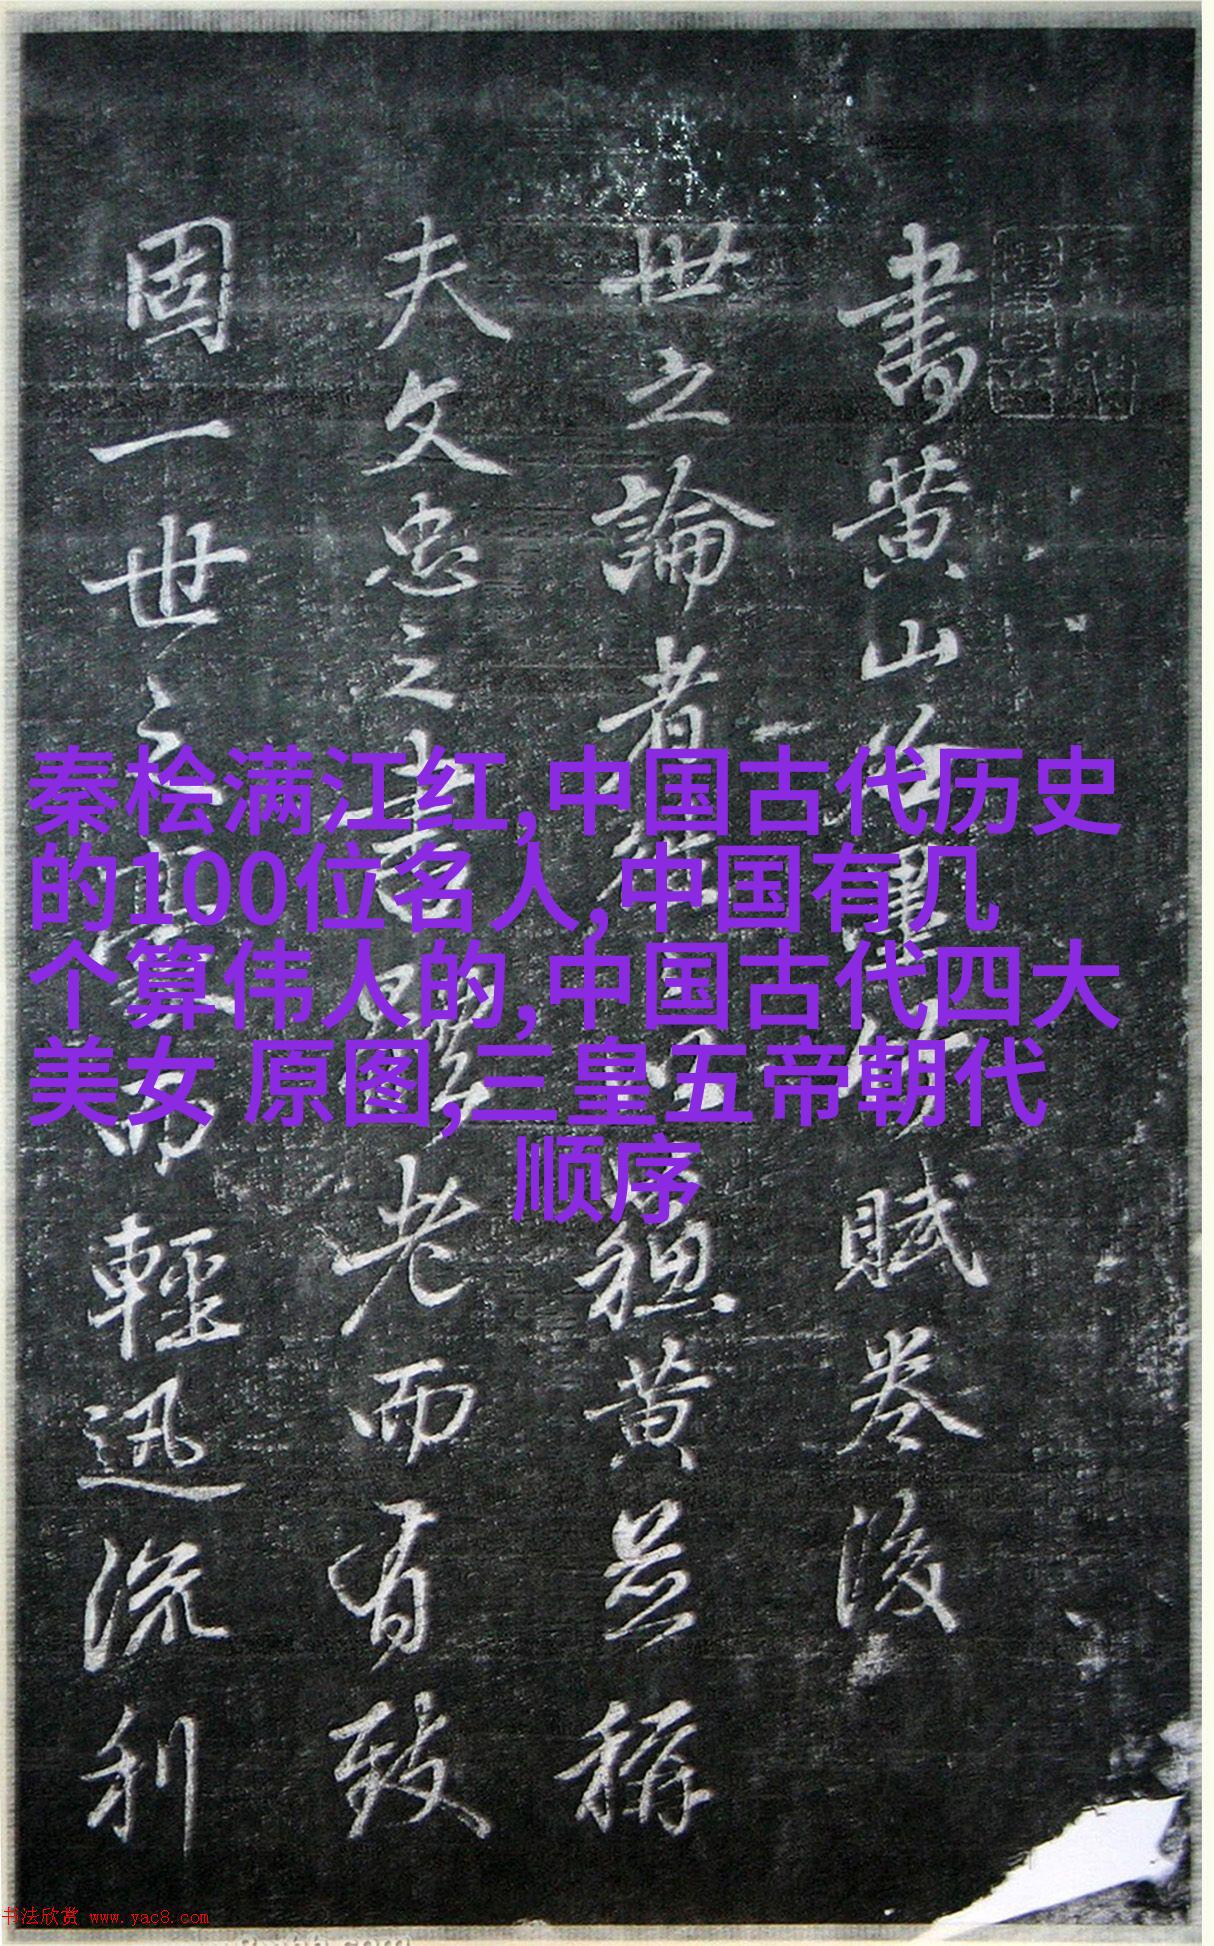 書黄山谷墨竹賦卷後
世之論者黄並稱
夫文忠之書老而有致
固一世之而輕迅流利
秦桧满江红,中国古代历史
的100位名人,中国有几
个算伟人的,中国古代四大
美女 原图,三皇五帝朝代
顺序
书法欣赏 www.yac8.com